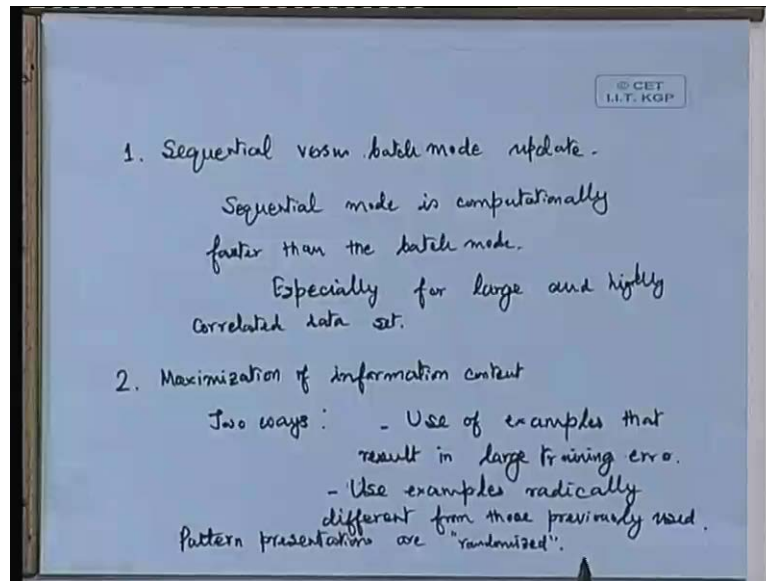 © CET
I.I.T. KGP
1. Sequential versus batch mode update.
Sequential mode is computationally
faster than the batch mode.
Especially for large and highly
correlated data set.
2. Maximization of information content
Two ways : - Use of examples that
result in large training error.
- Use examples radically
different from those previously used.
Pattern presentations are "randomized".